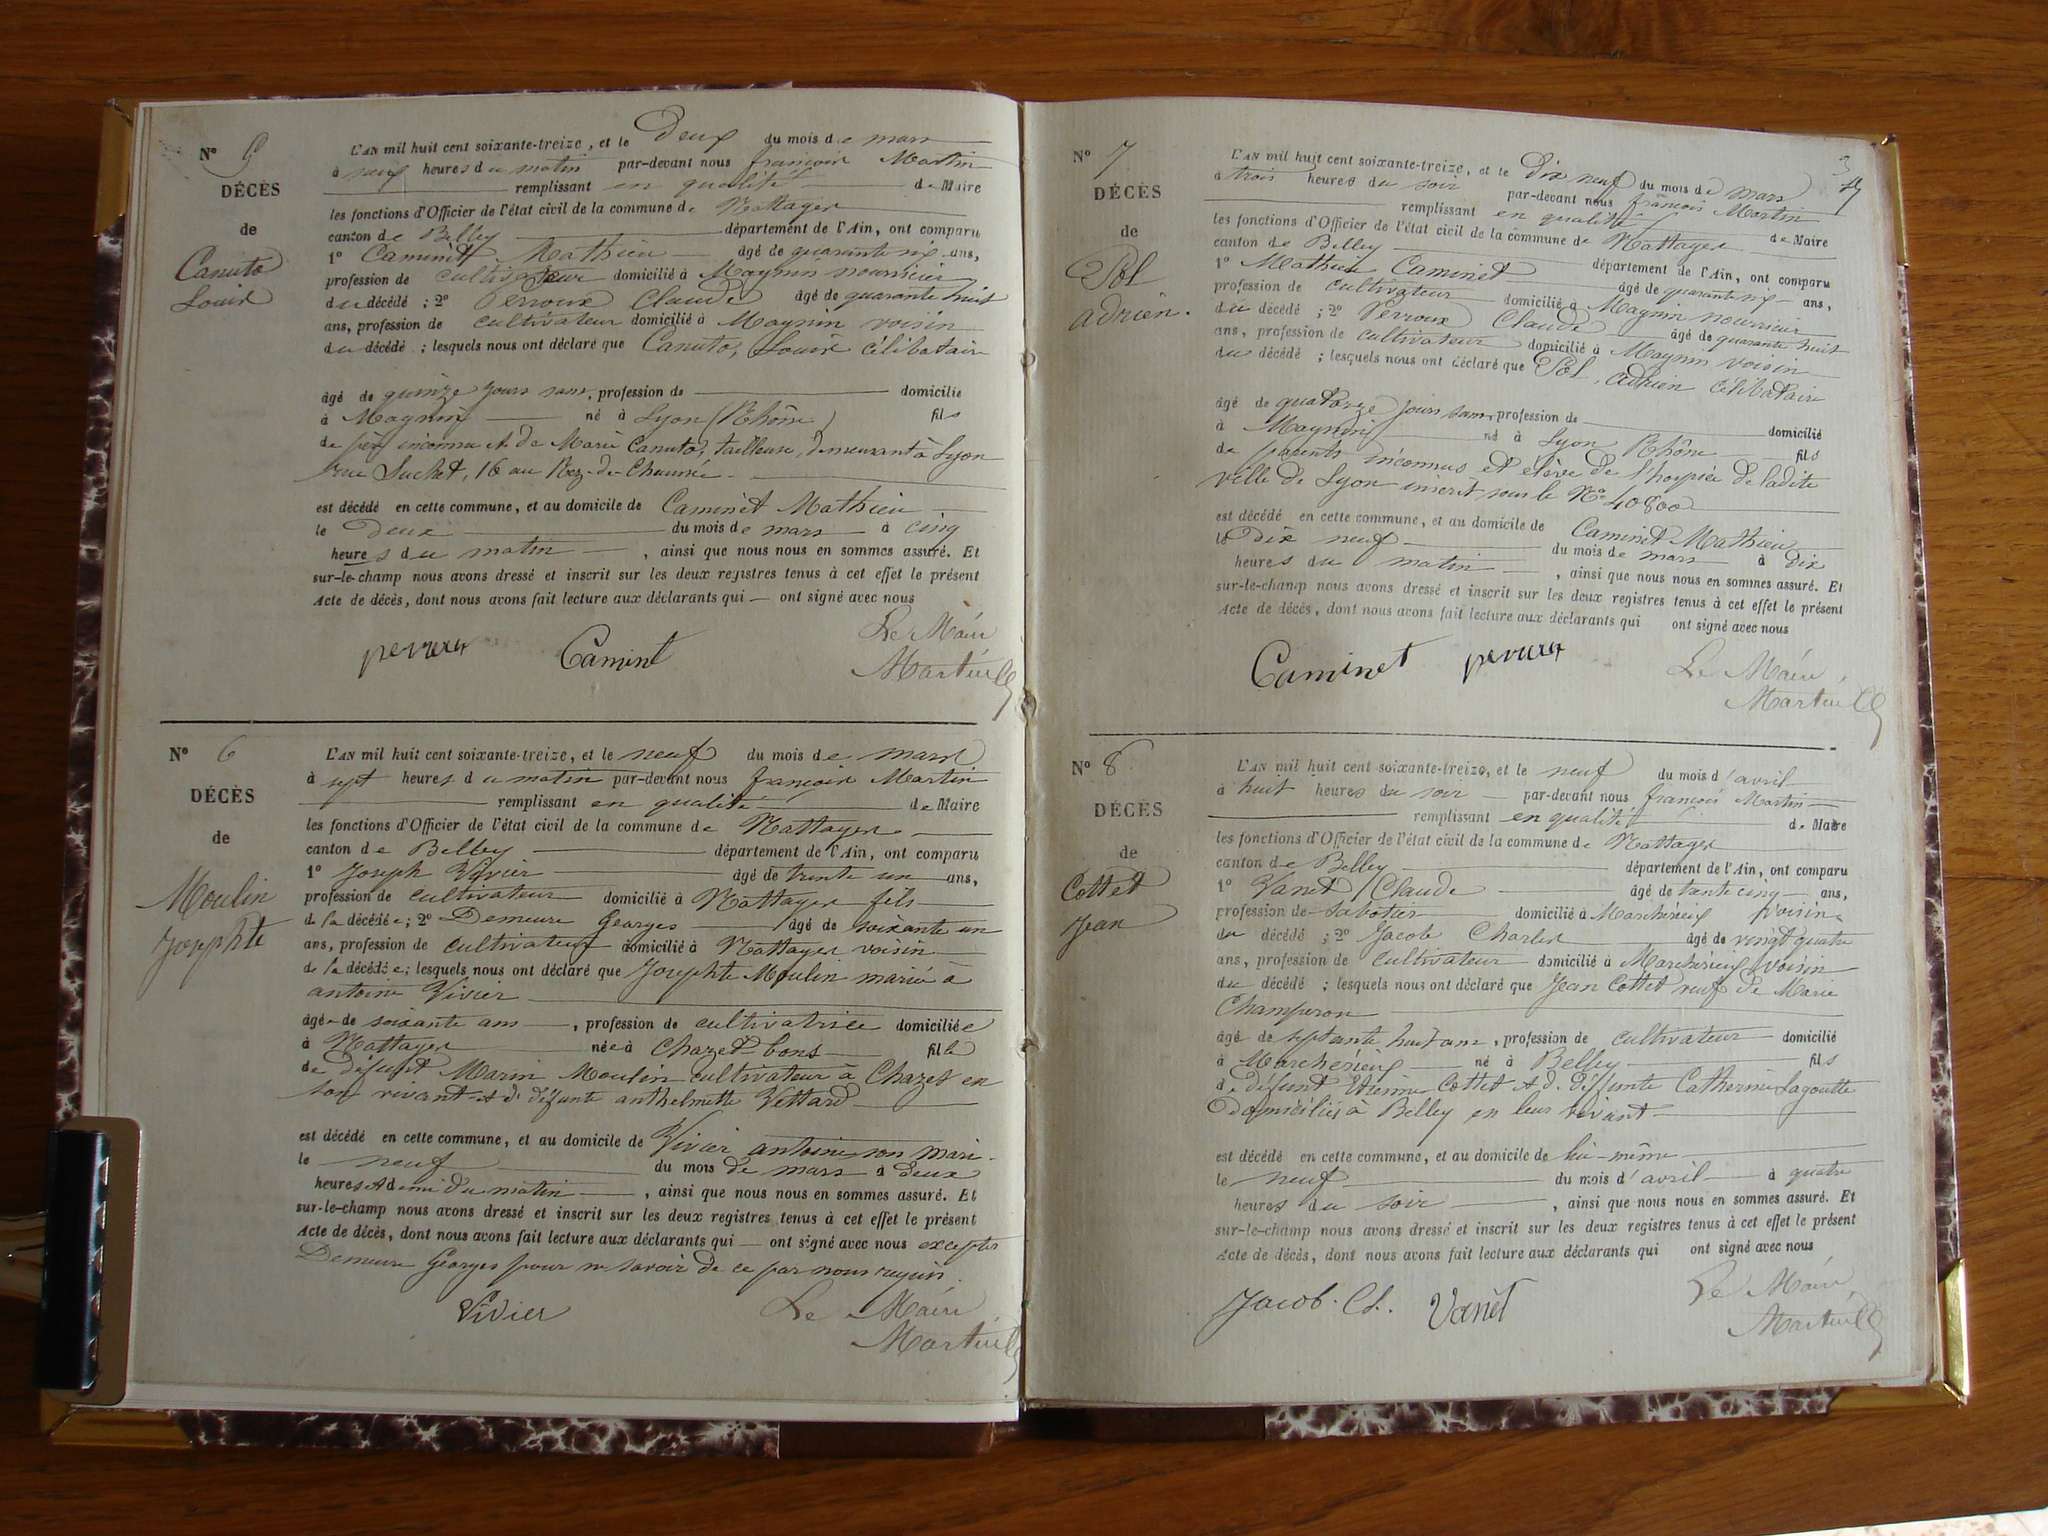 N° 5
DÉCÈS
de
Canuto
Louis
L'AN mil huit cent soixante-treize, et le Deux du mois de mars
à neuf heures du matin par-devant nous françois Martin
remplissant en qualité de Maire
les fonctions d'Officier de l'état civil de la commune de Nattages
canton de Belley département de l'Ain, ont comparu
1° Caminet Mathieu âgé de quarante six ans,
profession de cultivateur domicilié à Magnin nourricier
du décédé ; 2° Perroux Claude âgé de quarante huit
ans, profession de cultivateur domicilié à Magnin voisin
du décédé ; lesquels nous ont déclaré que Canuto, Louis célibataire
âgé de quinze jours sans, profession de domicilié
à Magnin né à Lyon (Rhône) fils
de père inconnu et de Marie Canuto, tailleuse, demeurant à Lyon
rue Suchet, 16 au Rez-de-Chaussée
est décédé en cette commune, et au domicile de Caminet Mathieu
le Deux du mois de mars à cinq
heures du matin, ainsi que nous nous en sommes assuré. Et
sur-le-champ nous avons dressé et inscrit sur les deux registres tenus à cet effet le présent
Acte de décès, dont nous avons fait lecture aux déclarants qui ont signé avec nous
Le Maire
perroux Caminet
Martin
N° 6
DÉCÈS
de
Moulin
Josephte
L'AN mil huit cent soixante-treize, et le neuf du mois de mars
à sept heures du matin par-devant nous françois Martin
remplissant en qualité de Maire
les fonctions d'Officier de l'état civil de la commune de Nattages
canton de Belley département de l'Ain, ont comparu
1° Joseph Vivier âgé de trente un ans,
profession de cultivateur domicilié à Nattages fils
de la décédée ; 2° Demeure Georges âgé de soixante un
ans, profession de cultivateur domicilié à Nattages voisin
de la décédée ; lesquels nous ont déclaré que Josephte Moulin mariée à
antoine Vivier
âgée de soixante ans, profession de cultivatrice domiciliée
à Nattages née à Chazet-bons fille
de défunt Marin Moulin cultivateur à Chazet en
son vivant et de défunte anthelmette Vettard
est décédé en cette commune, et au domicile de Vivier antoine son mari
le neuf du mois de mars à deux
heures et demi du matin, ainsi que nous nous en sommes assuré. Et
sur-le-champ nous avons dressé et inscrit sur les deux registres tenus à cet effet le présent
Acte de décès, dont nous avons fait lecture aux déclarants qui ont signé avec nous excepté
Demeure Georges pour ne savoir de ce par nous requis.
Vivier Le Maire
Martin
3
N° 7
DÉCÈS
de
Pol
adrien.
L'AN mil huit cent soixante-treize, et le Dix neuf du mois de mars
à trois heures du soir par-devant nous françois Martin
remplissant en qualité de Maire
les fonctions d'Officier de l'état civil de la commune de Nattages
canton de Belley département de l'Ain, ont comparu
1° Mathieu Caminet âgé de quarante six ans,
profession de cultivateur domicilié à Magnin nourricier
du décédé ; 2° Perroux Claude âgé de quarante huit
ans, profession de cultivateur domicilié à Magnin voisin
du décédé ; lesquels nous ont déclaré que Pol, adrien célibataire
âgé de quatorze jours sans, profession de domicilié
à Magnin né à Lyon Rhône fils
de parents inconnus et élève de l'hospice de ladite
ville de Lyon inscrit sous le N° 40800
est décédé en cette commune, et au domicile de Caminet Mathieu
le Dix neuf du mois de mars à Dix
heures du matin, ainsi que nous nous en sommes assuré. Et
sur-le-champ nous avons dressé et inscrit sur les deux registres tenus à cet effet le présent
Acte de décès, dont nous avons fait lecture aux déclarants qui ont signé avec nous
Caminet perroux Le Maire
Martin
N° 8
DÉCÈS
de
Cottet
Jean
L'AN mil huit cent soixante-treize, et le neuf du mois d'avril
à huit heures du soir par-devant nous françois Martin
remplissant en qualité de Maire
les fonctions d'Officier de l'état civil de la commune de Nattages
canton de Belley département de l'Ain, ont comparu
1° Vanet Claude âgé de tante cinq ans,
profession de sabotier domicilié à voisin
du décédé ; 2° Jacob Charles âgé de vingt quatre
ans, profession de cultivateur domicilié à voisin
du décédé ; lesquels nous ont déclaré que Jean Cottet veuf de Marie
Champuron
âgé de septante huit ans, profession de cultivateur domicilié
à né à Belley fils
de défunt Etienne Cottet et d. défunte Catherine Lagoutte
Domiciliés à Belley en leur vivant
est décédé en cette commune, et au domicile de lui-même
le neuf du mois d'avril à quatre
heures du soir, ainsi que nous nous en sommes assuré. Et
sur-le-champ nous avons dressé et inscrit sur les deux registres tenus à cet effet le présent
Acte de décès, dont nous avons fait lecture aux déclarants qui ont signé avec nous
Jacob. Ch. Vanet Le Maire
Martin